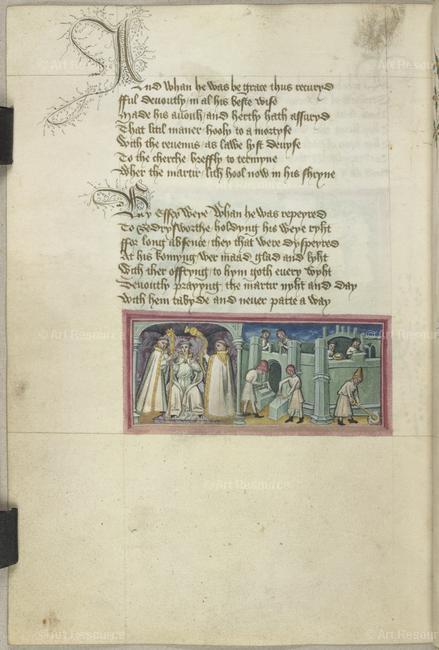 And whan he was be grace thus recuryd
fful deuoutly in al his beste wise
Made his auouh and hertly hath assuryd
That litil maner hooly to amortyse
With the revenus as lawe lyst deuyse
To the cherche breffly to termyne
Wher the martir lith hool now in his shryne
By Essex weye whan he was repeyred
To Bedrysworthe holdyng his weye ryht
ffor long absence they that were dyspeyred
At his komyng wer maad glad and lyht
With ther offryng to hym goth euery wyht
Deuoutly prayyng the martir nyht and day
With hem tabyde and neuer parte a way
© Art Resource
© Art Resource
© Art Resource
© Art Resource
© Art Resource
© Art Resource